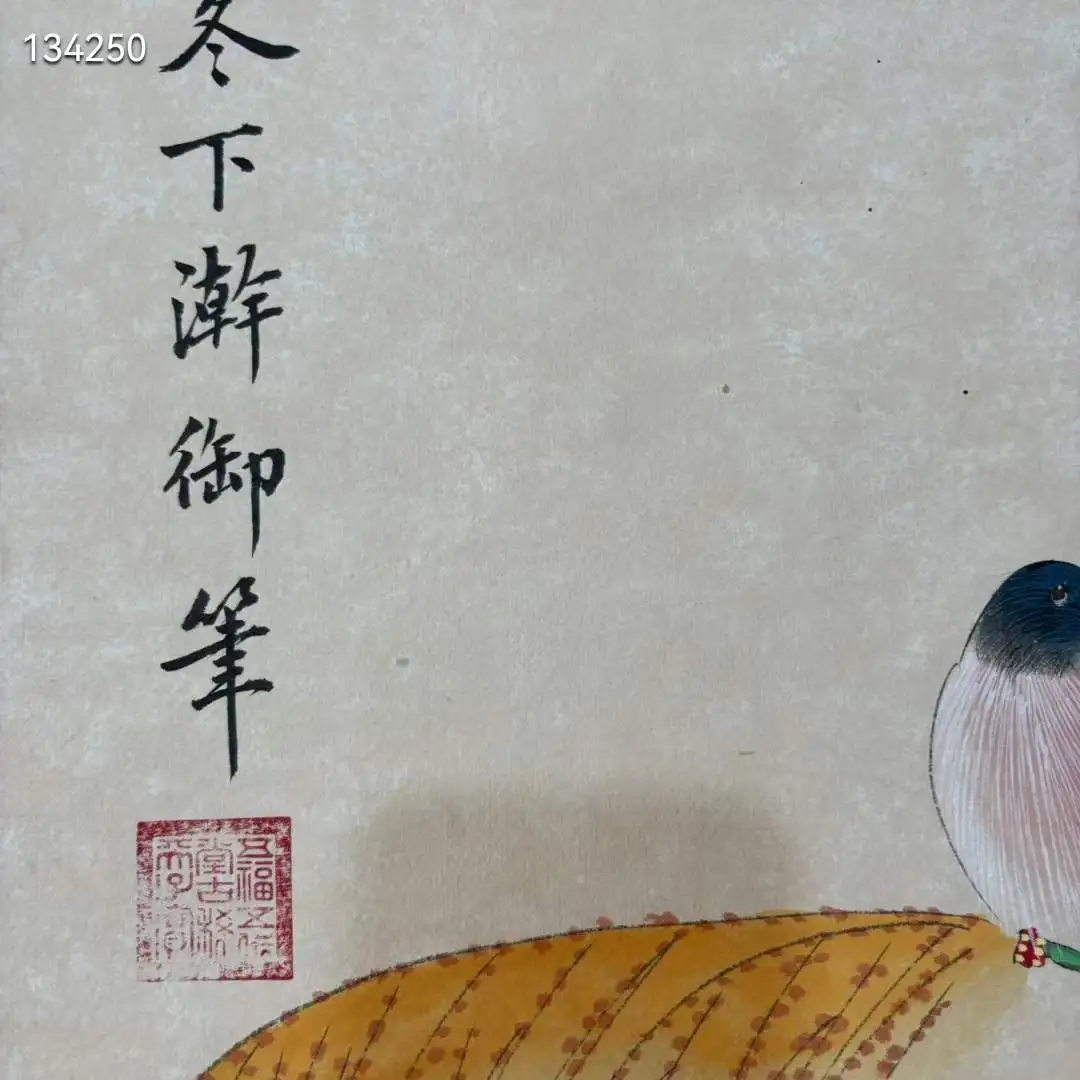 134250
冬下澣御筆
五福五代
堂古稀
天子寶